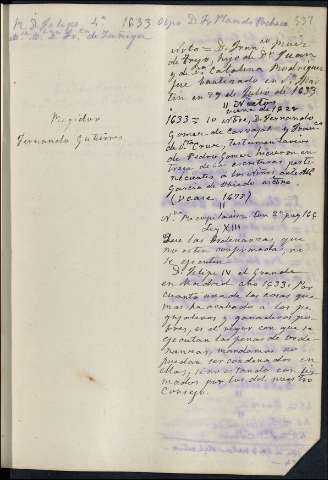 R. D. Felipe 4º 1633 Obpo D. Fr. Plando Pacheco 337
de Zuñiga
Regidor
Fernando Gutierrez
nota = D. Fran.co
de hijo de Dn Juan
y de Da Catalina Rodriguez
fue bautizado en Sn Mar-
tin en 29 de Julio de 1633
1633 = 10 nbre, D. Fernando
Gomez de Carvajal y Franca
de la Cruz, Testamentarios
de Pedro Gomez hicieron en-
trega de las escrituras perte-
necientes a los niños de Al
Garcia de Obledo
(vease 1573)
11
Na Recopilacion tom 2º pag 169
Ley XIII
Que las Ordenanzas que
no esten confirmadas, no
se ejecuten
D. Felipe IV el Grande
en Madrid año 1633. Por
cuanto una de las cosas que
mas ha acabado a los pe-
gujaleros y ganaderos po-
bres, es el rigor con que se
ejecutan las penas de Orde-
nanzas, mandamos no
puedan ser condenados en
ellas, sino estando confir-
madas por los del nuestro
Consejo.